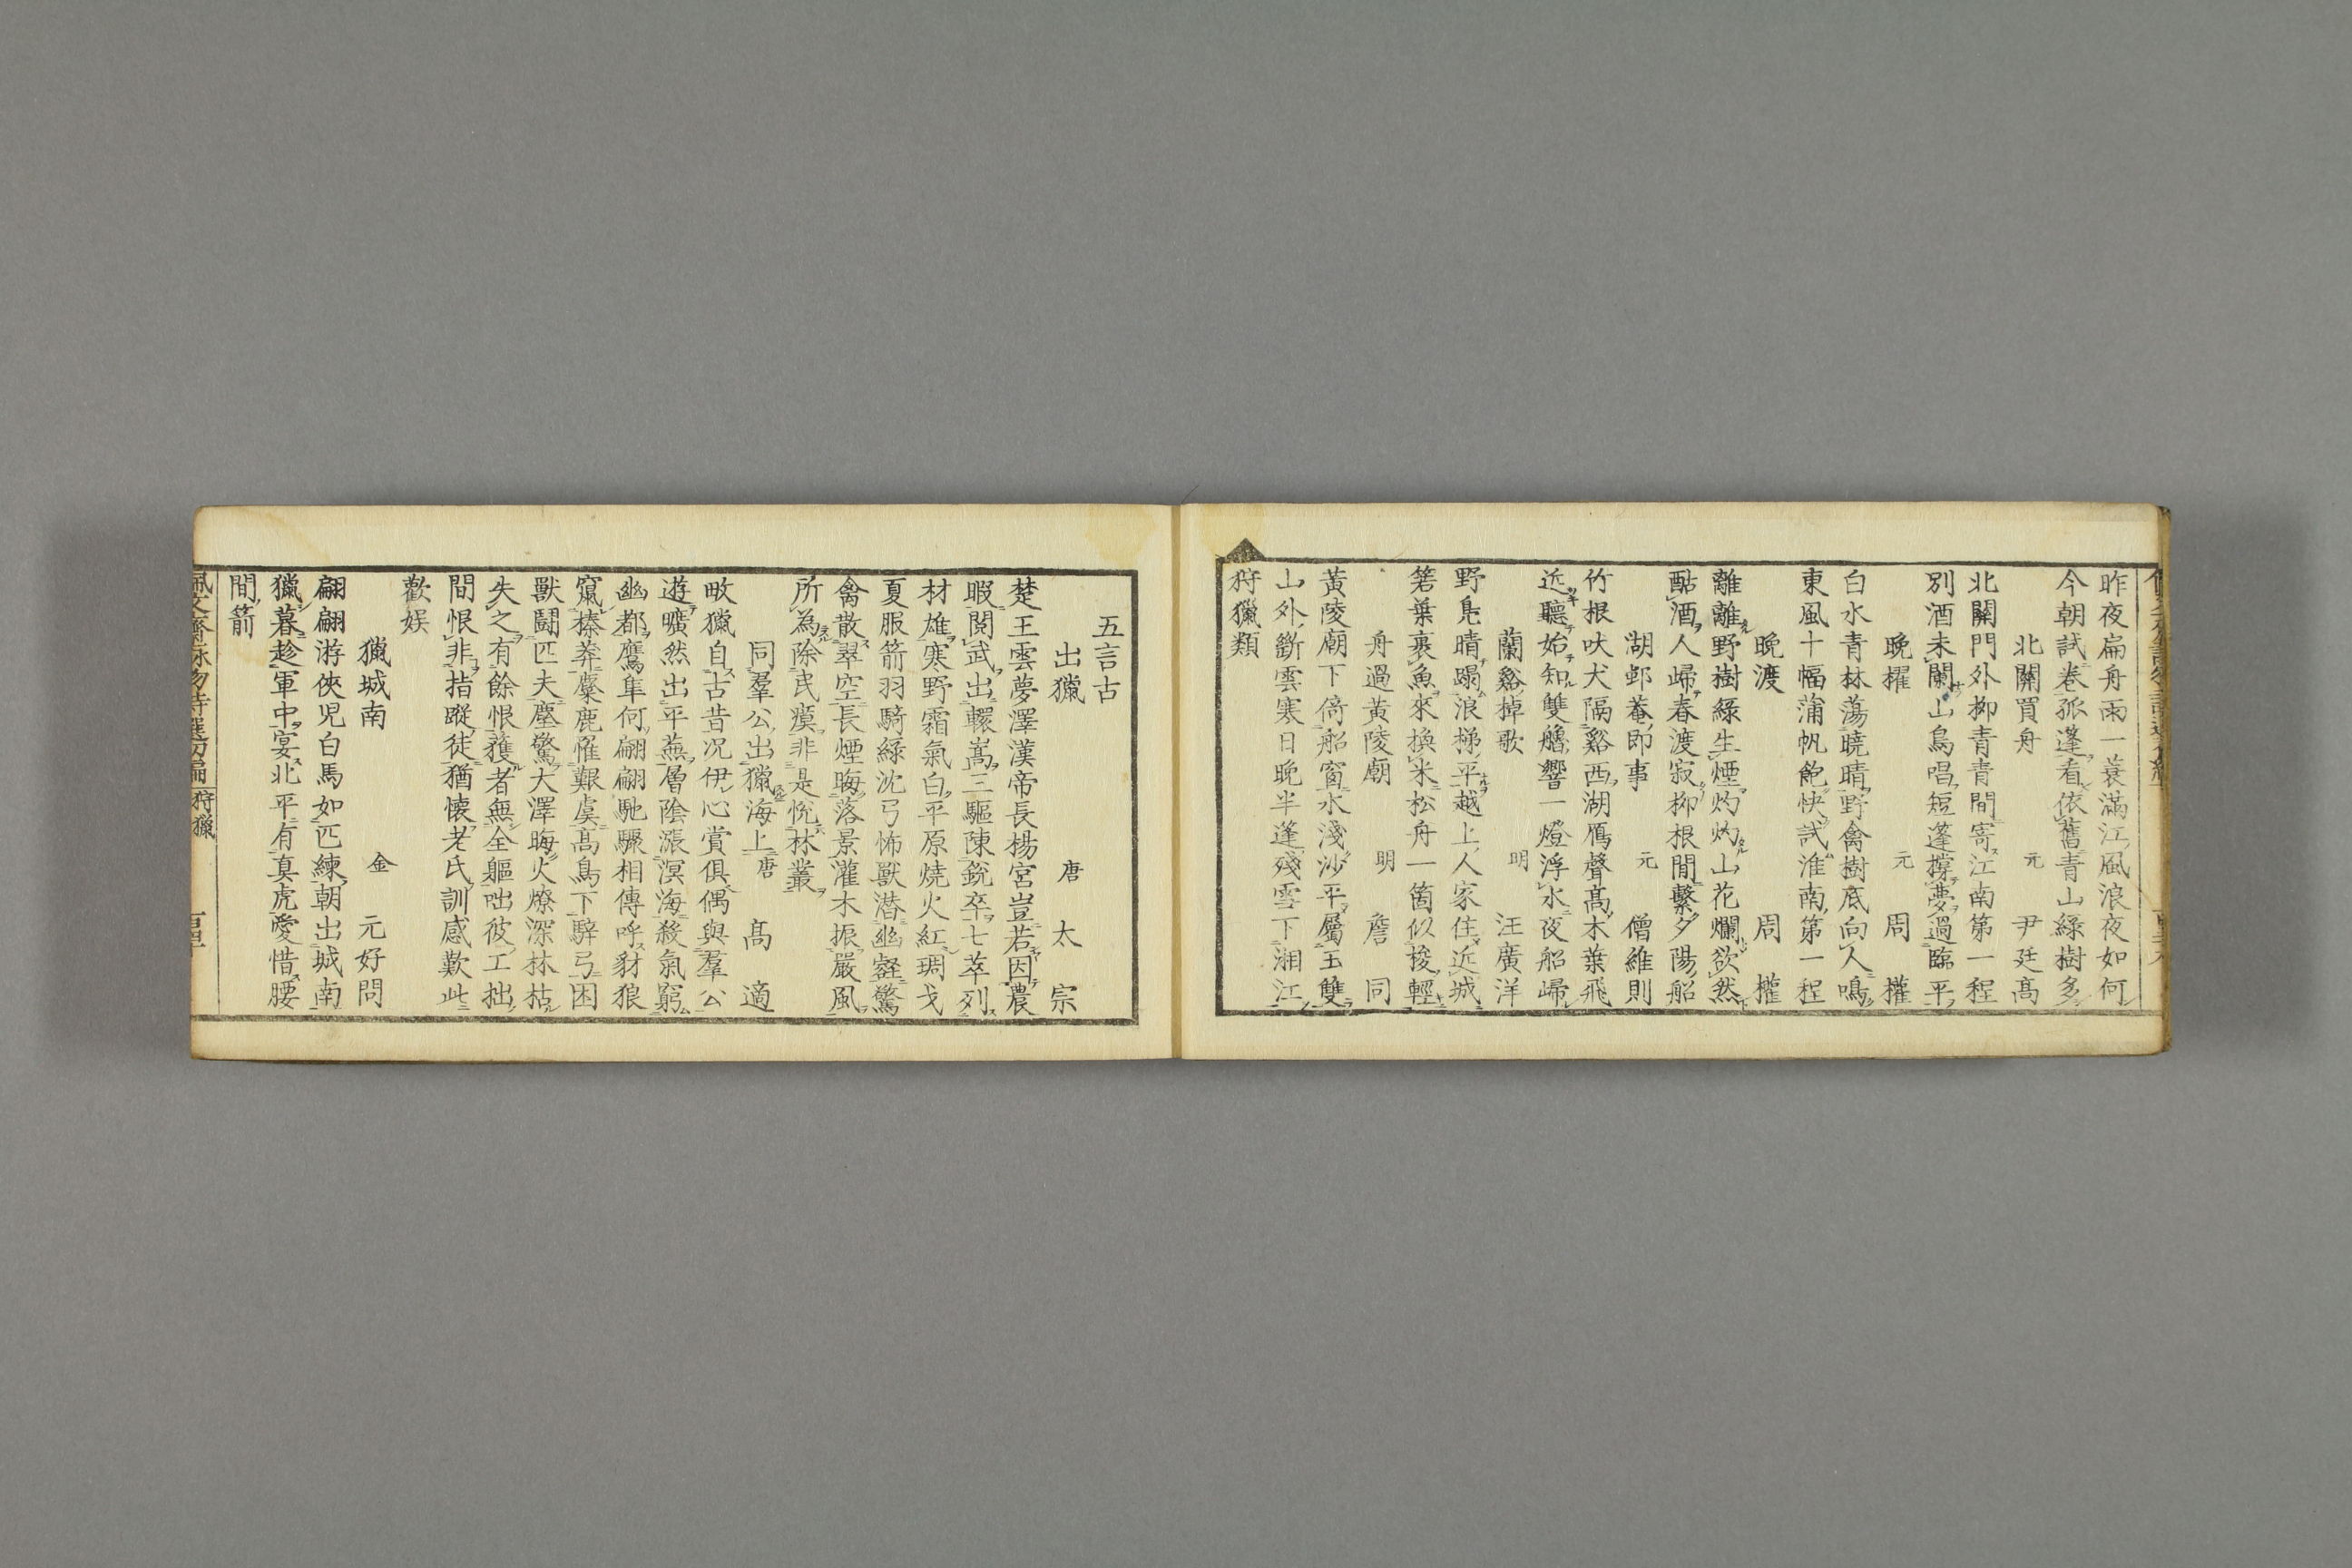 昨夜扁舟雨一蓑滿江風浪夜如何
今朝試卷孤蓬看依舊青山綠樹多
北關買舟 元 尹廷高
北關門外柳青青閒寄江南第一程
別酒未闌山鳥唱短蓬撐夢過臨平
晚櫂 元 周權
白水青林蕩曉晴野禽樹底向人鳴
東風十幅蒲帆飽快試淮南第一程
晚渡 周權
離離野樹綠生煙灼灼山花爛欲然
酤酒人歸春渡寂柳根閒繫夕陽船
湖邨菴即事 元 僧維則
竹根吠犬隔谿西湖鴈聲髙木葉飛
近聽始知雙艣響一燈浮水夜船歸
蘭谿棹歌 明 汪廣洋
野凫晴蹋浪梯平越上人家住近城
箬葉裹魚來換米松舟一箇似梭輕
舟過黃陵廟 明 詹同
黃陵廟下倚船窗水淺沙平屬玉雙
山外斷雲寒日晚半蓬殘雪下湘江
狩獵類
五言古
出獵 唐 太宗
楚王雲夢澤漢帝長楊宮豈若因農
暇閱武出轘嵩三驅陳銳卒七萃列
材雄寒野霜氣白平原燒火紅琱戈
夏服箭羽騎綠沈弓怖獸潜幽壑驚
禽散翠空長煙晦落景灌木振嚴風
所為除民瘼非是悅林叢
同羣公出獵海上 唐 髙適
畋獵自古昔况伊心賞俱偶與羣公
遊曠然出平蕪層陰漲溟海殺氣窮
幽都鷹隼何翩翩馳驟相傳呼豺狼
竄榛莽麋鹿罹艱虞髙鳥下騂弓困
獸鬪匹夫塵驚大澤晦火燎深林枯
失之有餘恨獲者無全軀咄彼工拙
間恨非指蹤徒猶懷老氏訓感歎此
歡娱
獵城南 金 元好問
翩翩游俠児白馬如匹練朝出城南
獵暮趁軍中宴北平有真虎愛惜腰
間箭
狩獵